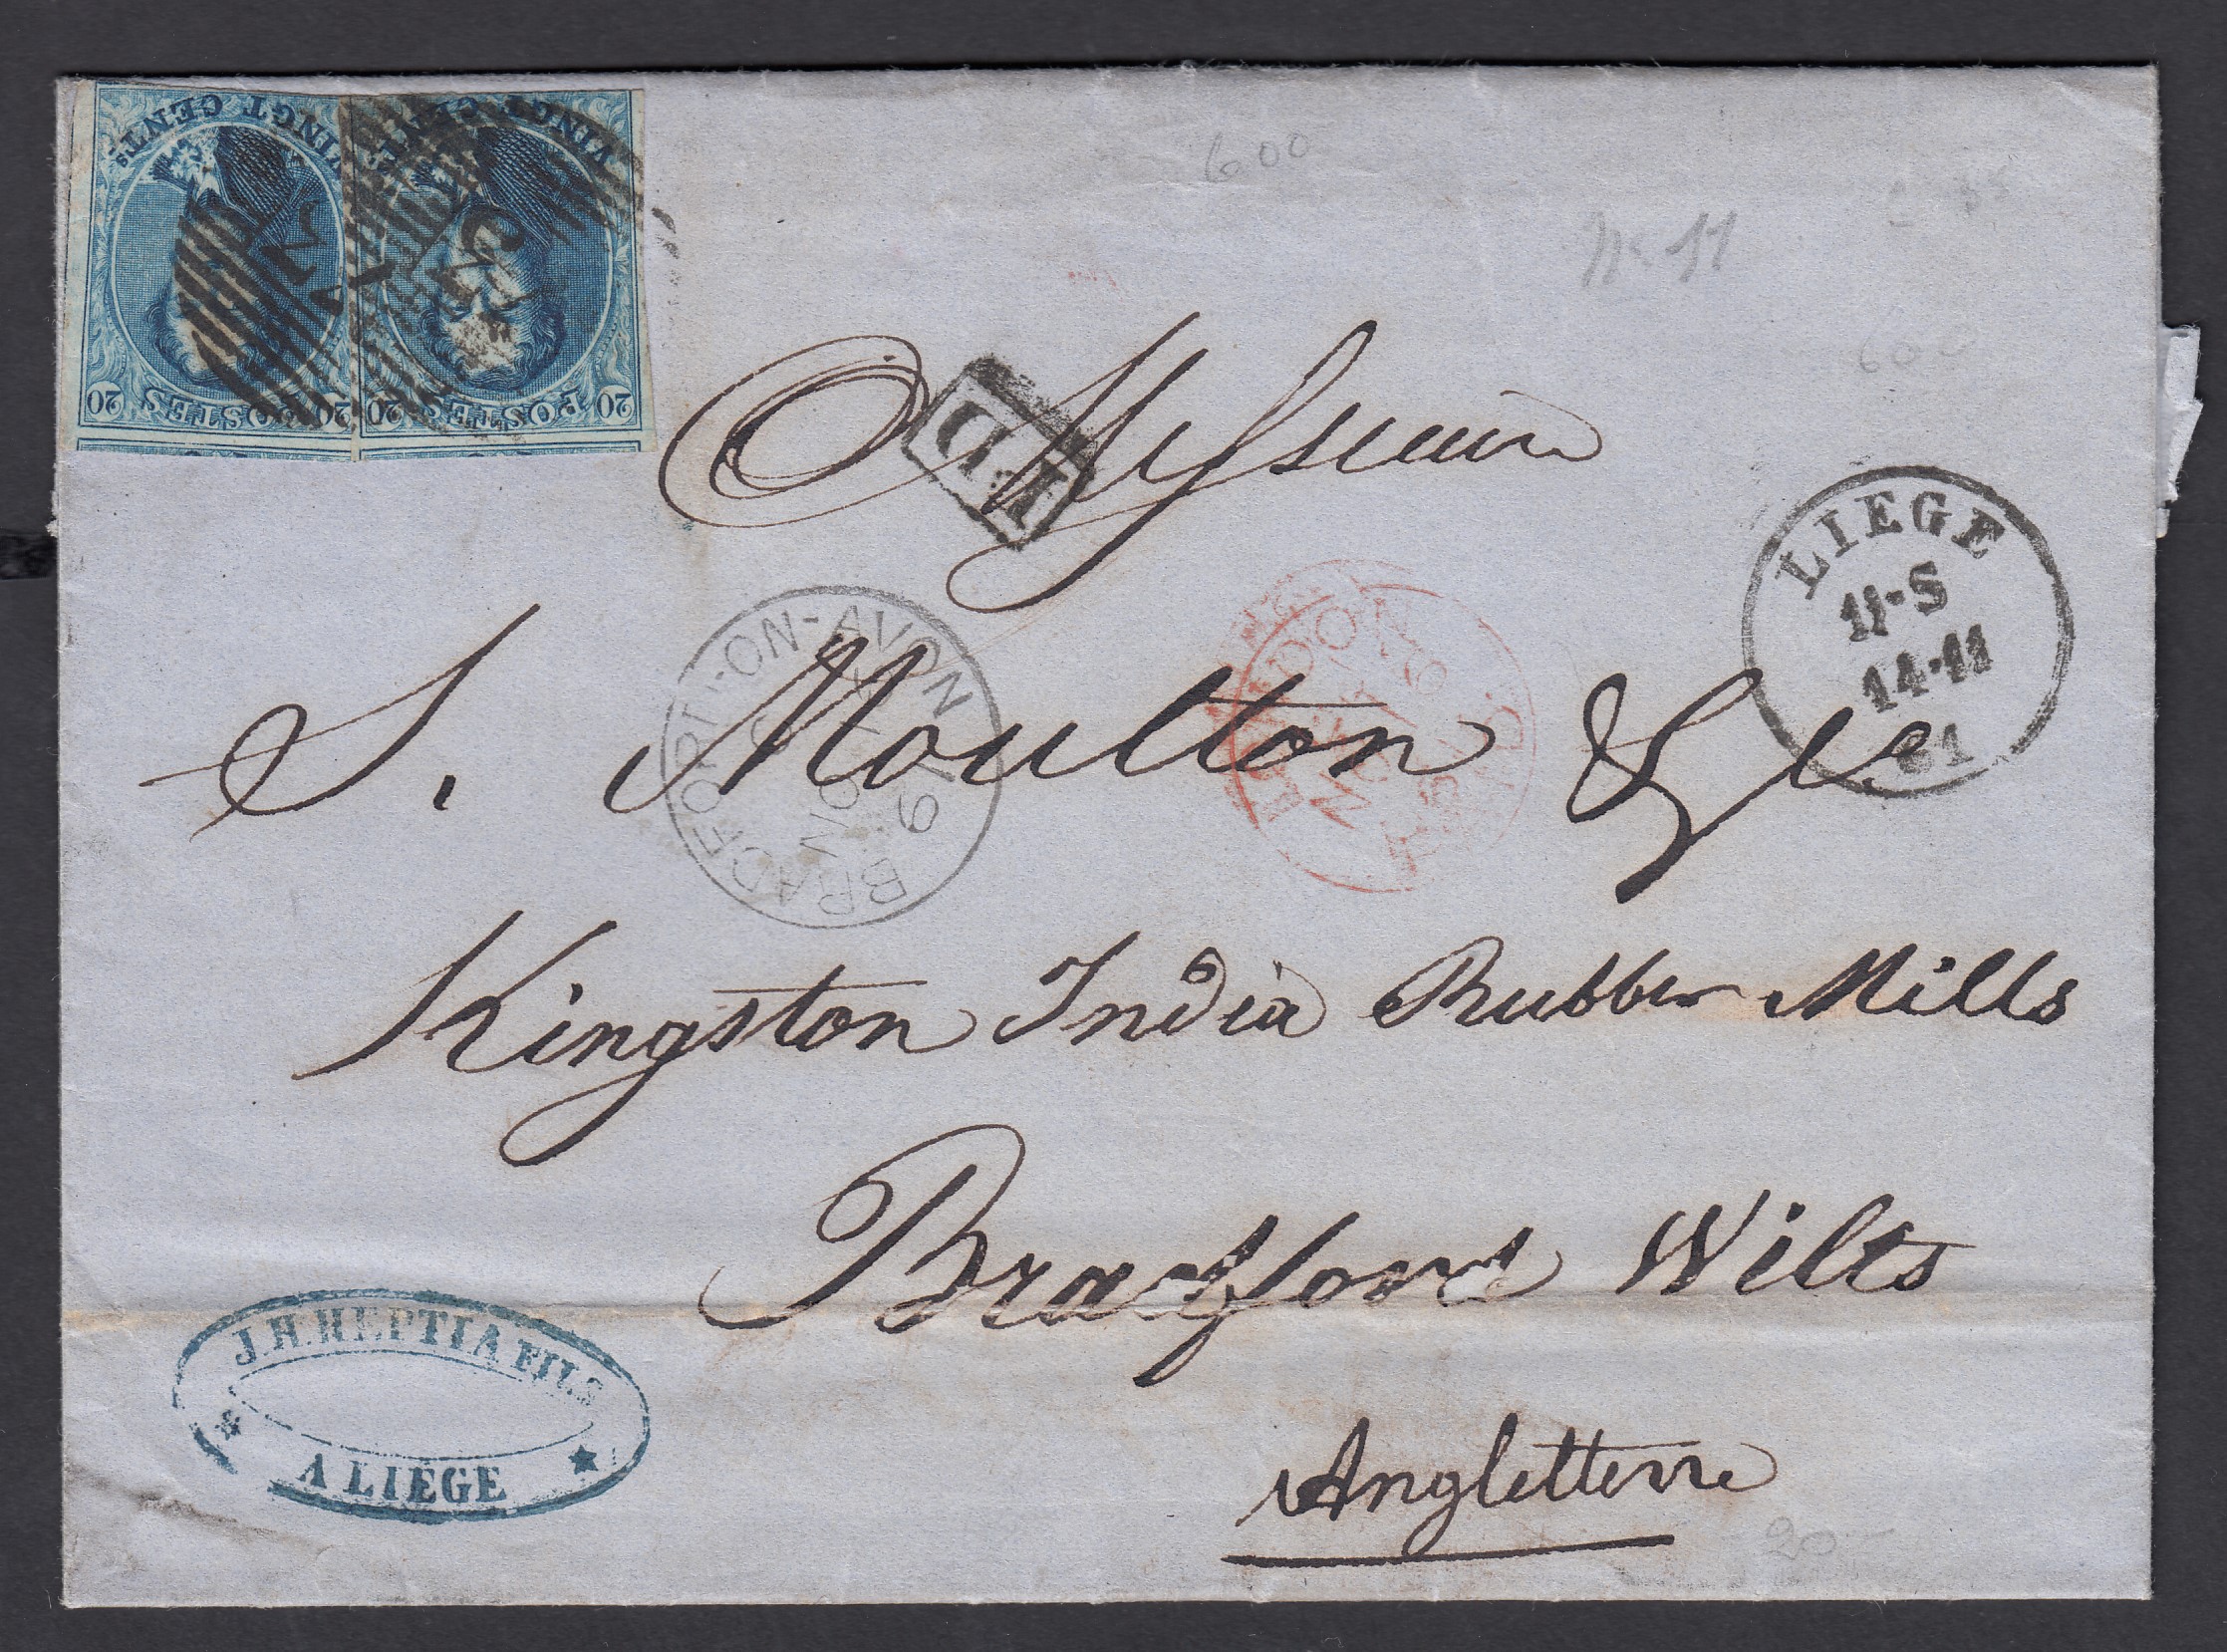 VINGT CENTS VINGT CENTS
20 POSTES 20 20 POSTES 20
600
No 11
600
PD
Messieurs
LIEGE
11·S
14·11
61
BRADFORD-ON-AVON
NOV
61
LONDON
NO
PAID
S. Moulton & Cie
Kingston India Rubber Mills
Bradford Wilts
Angleterre
J.H. HEPTIA FILS
A LIÉGE
20